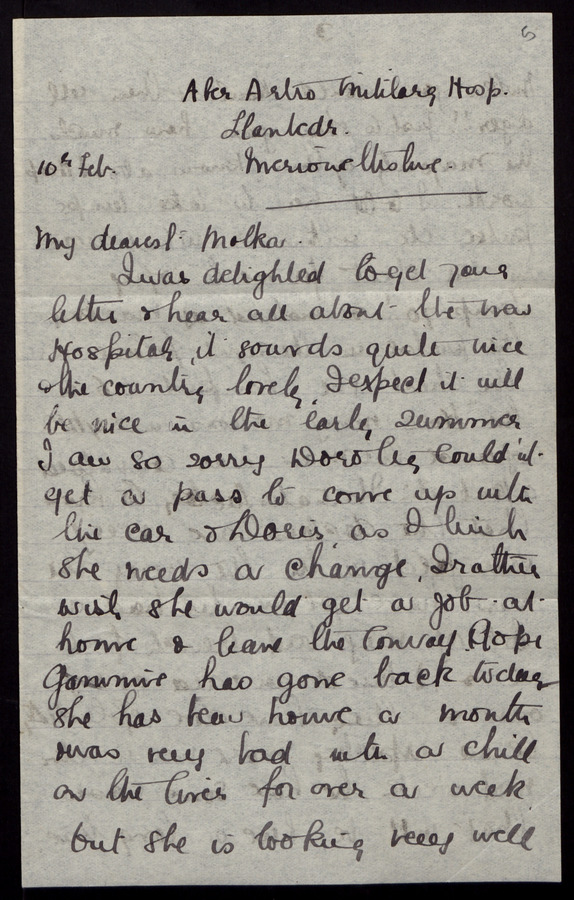 6
Aber Artro Military Hosp.
Llanbedr.
10th Feb. Merionethshire.
My dearest Molka.
I was delighted to get your
letter & hear all about the new
Hospital, it sounds quite nice
& the country lovely, I expect it will
be nice in the early summer
I am so sorry Dorothy could'nt
get a pass to come up with
the car & Doris, as I think
she needs a change, I rather
wish she would get a job at
home & leave the Convoy.
Gammie has gone back today
she has been home a month
was very bad with a chill
on the liver for over a week
but she is looking very well